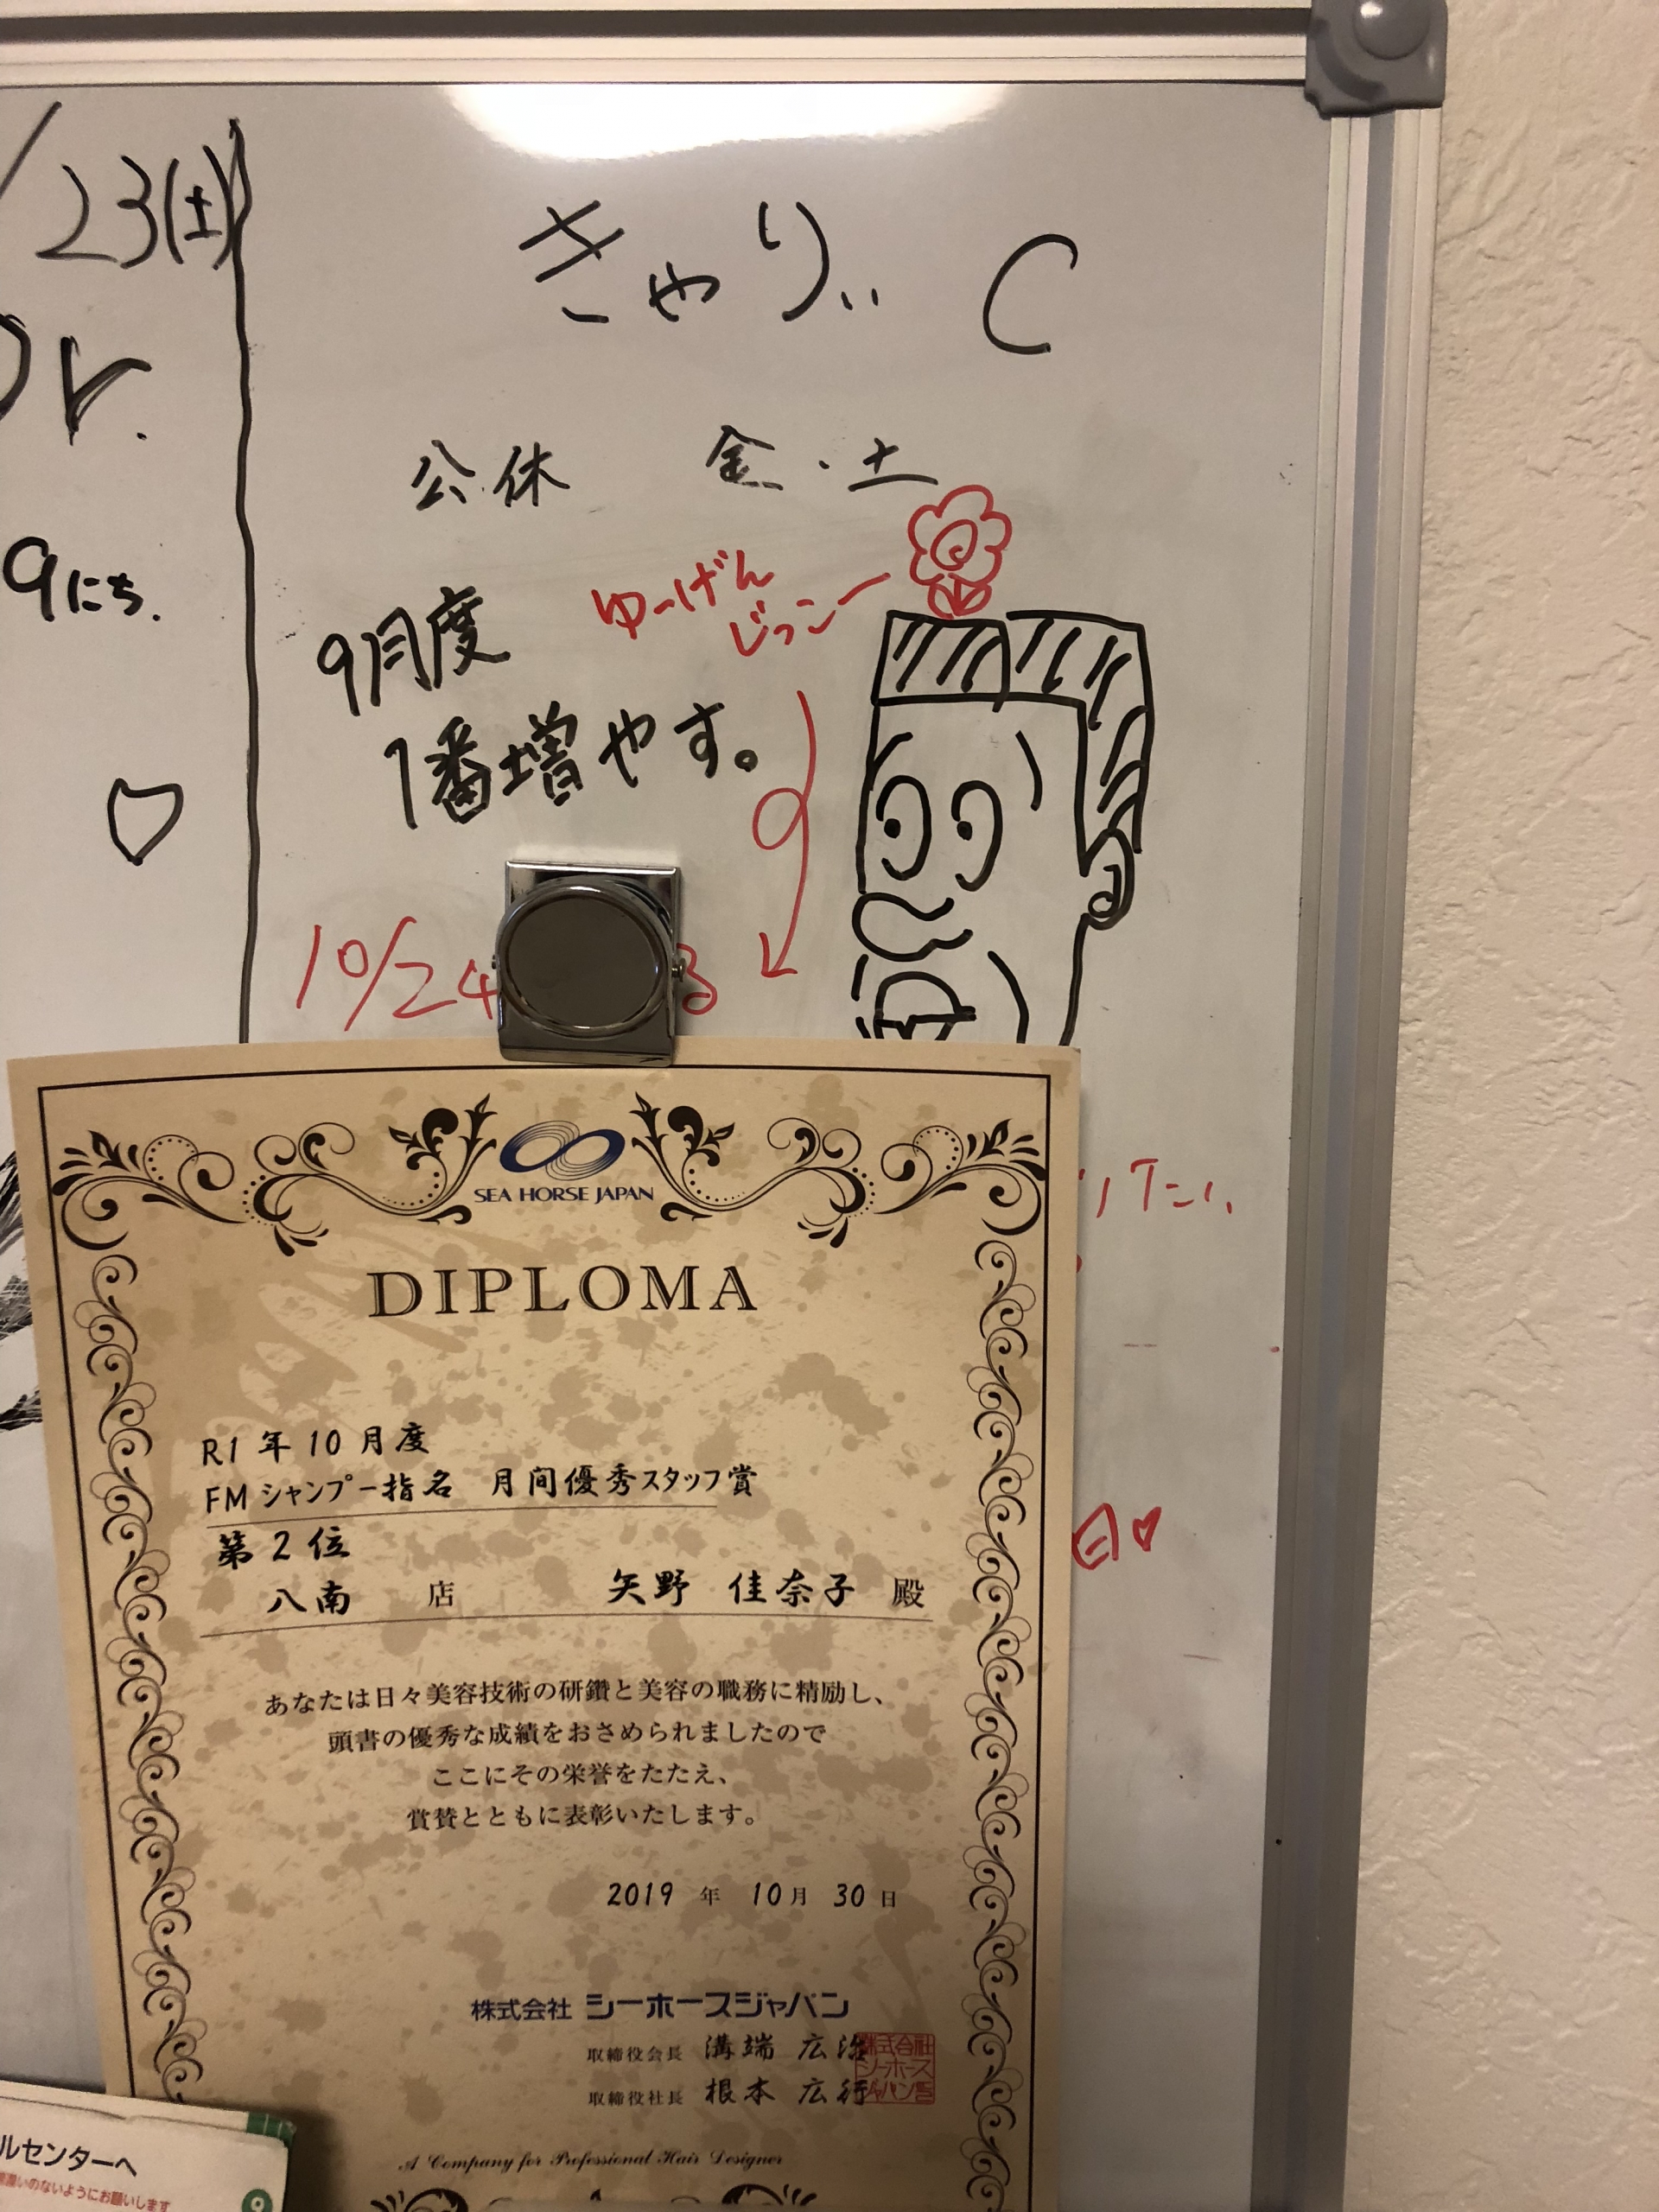 23(土)
Dr.
9にち.
きゃりぃ C
公休 金・土
ゆーげん
じっこー
9月度
1番増やす。
10/24
SEA HORSE JAPAN
DIPLOMA
R1 年 10 月度
FM シャンプー指名 月間優秀スタッフ賞
第 2 位
八南 店 矢野 佳奈子 殿
あなたは日々美容技術の研鑽と美容の職務に精励し、
頭書の優秀な成績をおさめられましたので
ここにその栄誉をたたえ、
賞賛とともに表彰いたします。
2019 年 10 月 30 日
株式会社 シーホースジャパン
取締役会長 溝端 広治
取締役社長 根本 広行
株式会社
シーホース
ジャパン
A Company for Professional Hair Designer
日♥
ルセンターへ
違いのないようにお願いします
9